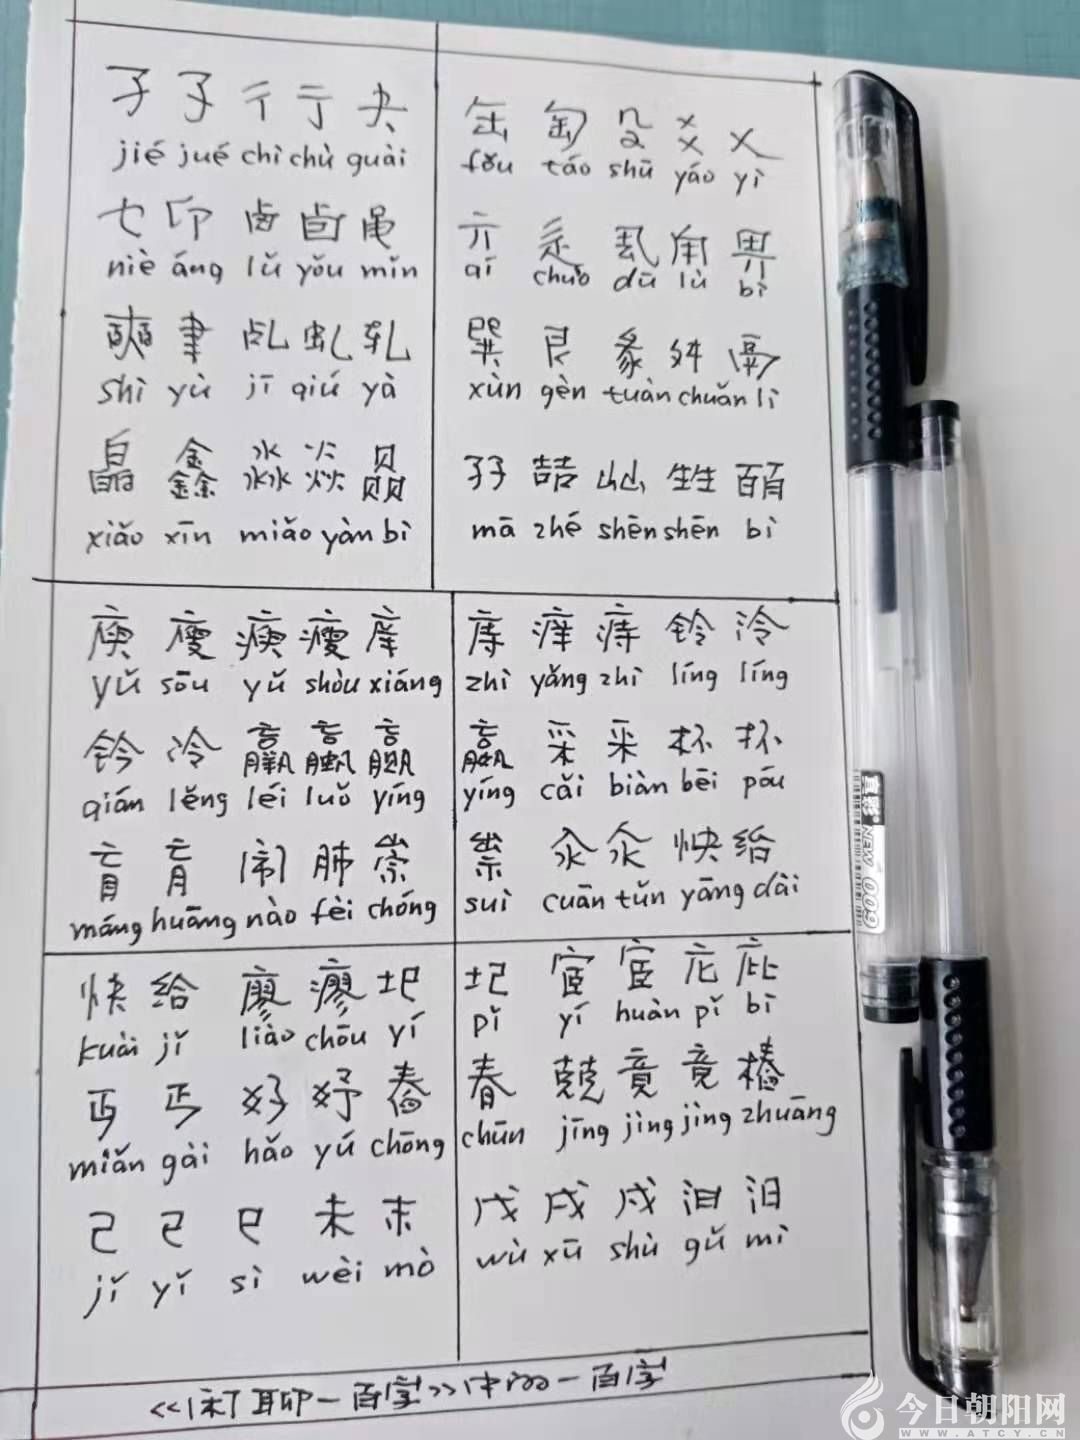 孑 孓 彳 亍 夬
jié jué chì chù guài
乜 卬 卤 卣 黾
niè áng lǔ yǒu mǐn
奭 聿 乩 虬 轧
shì yù jī qiú yà
皛 鑫 淼 焱 赑
xiǎo xīn miǎo yàn bì
缶 匋 殳 爻 乂
fǒu táo shū yáo yì
亓 辵 甪 畀
qí chuò dū lù bì
巽 艮 彖 舛 鬲
xùn gèn tuàn chuǎn lì
孖 喆 屾 甡 皕
mā zhé shēn shēn bì
庾 廋 瘐 瘦 庠
yǔ sōu yǔ shòu xiáng
钤 冷 羸 蠃 嬴
qián lěng léi luǒ yíng
肓 闹 肺 崇
máng huāng nào fèi chóng
庤 痒 痔 铃 泠
zhì yǎng zhì líng líng
嬴 采 釆 杯 抔
yíng cǎi biàn bēi póu
祟 汆 氽 怏 绐
suì cuān tǔn yāng dài
快 给 廖 瘳 圯
kuài jǐ liào chōu yí
丏 丐 好 妤 舂
miǎn gài hǎo yú chōng
己 已 巳 未 末
jǐ yǐ sì wèi mò
圮 宧 宦 庀 庇
pǐ yí huàn pǐ bì
春 兢 竟 竞 樁
chūn jīng jìng jìng zhuāng
戊 戌 戍 汩 汨
wù xū shù gǔ mì
一百字》中的一百字
真彩 NEW 009
今日朝阳网
WWW.ATCY.CN